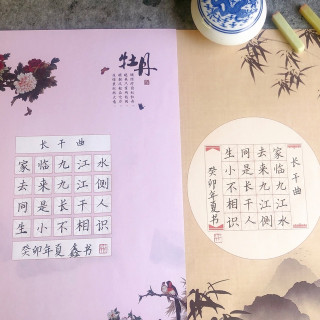 牡丹
长干曲
家临九江水
去来九江侧
同是长干人
生小不相识
癸卯年夏 鑫书
长干曲
家临九江水
去来九江侧
同是长干人
生小不相识
癸卯年夏书